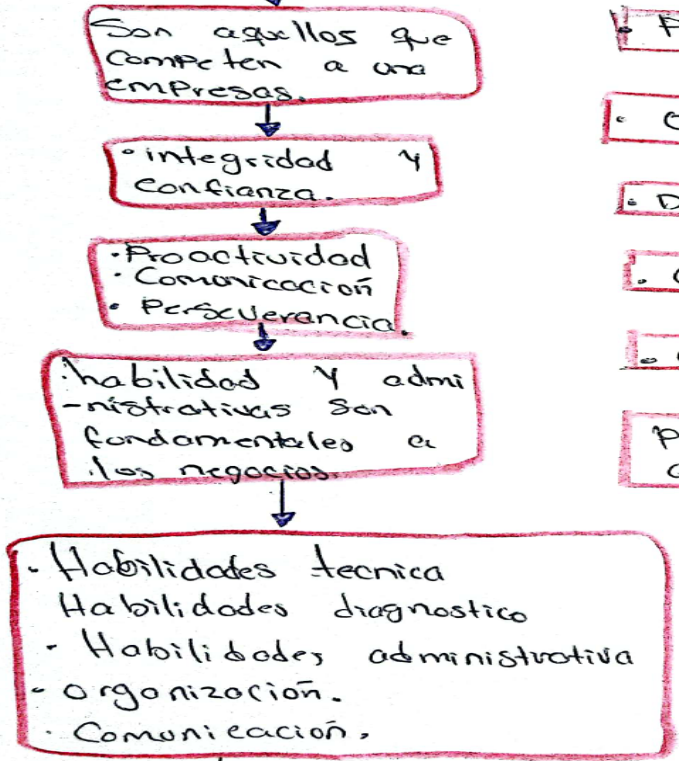 Son aquellos que
competen a una
empresas.
• integridad y
confianza.
• Proactividad
• Comunicación
• Perseverancia.
• habilidad y admi
-nistrativas son
fundamentales a
los negocios.
• Habilidades tecnica
Habilidades diagnostico
• Habilidades administrativa
• organización.
• Comunicación.